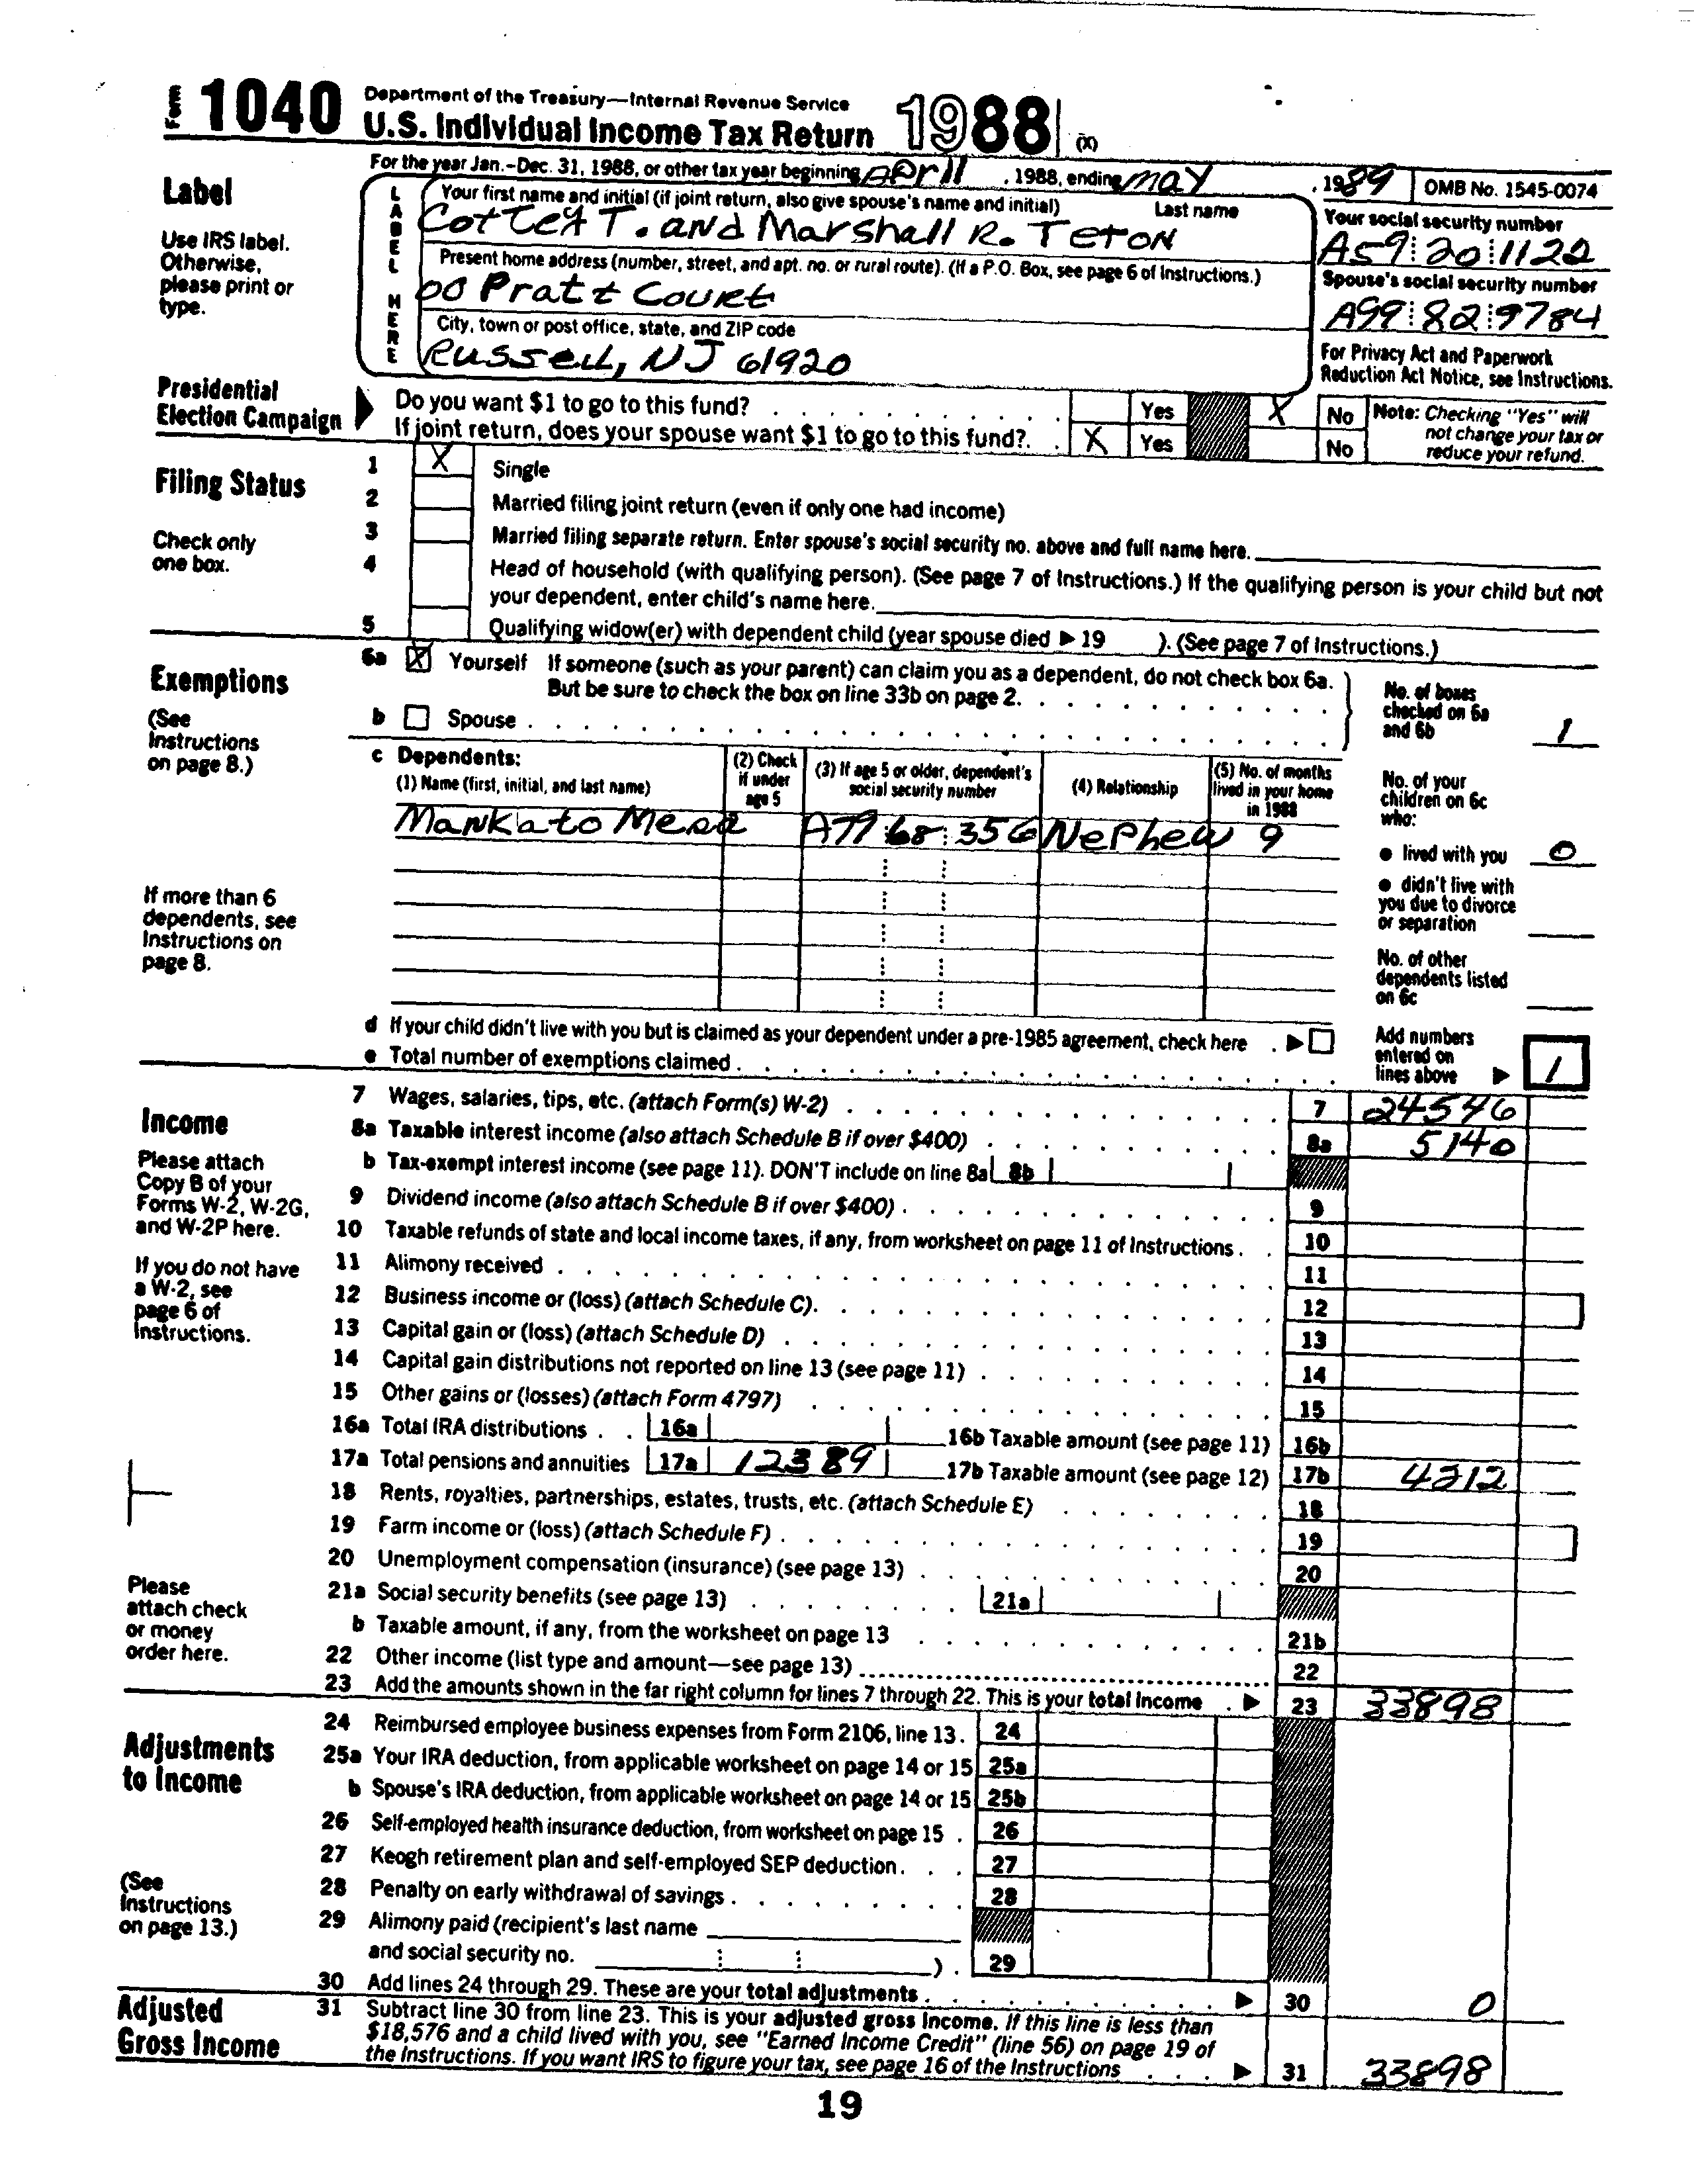 Form 1040 Department of the Treasury—Internal Revenue Service
U.S. Individual Income Tax Return 1988 (X)
For the year Jan.-Dec. 31, 1988, or other tax year beginning April , 1988, ending May , 1989 OMB No. 1545-0074
Label
Use IRS label. Otherwise, please print or type.
LABEL HERE
Your first name and initial (if joint return, also give spouse's name and initial) Last name
T. and Marshall R. Teton
Your social security number
A59 20 1122
Present home address (number, street, and apt. no. or rural route). (If a P.O. Box, see page 6 of Instructions.)
00 Pratt Court
Spouse's social security number
A99 82 9784
City, town or post office, state, and ZIP code
Russell, NJ 61920
For Privacy Act and Paperwork Reduction Act Notice, see Instructions.
Presidential Election Campaign
Do you want $1 to go to this fund? Yes X No
If joint return, does your spouse want $1 to go to this fund? X Yes No
Note: Checking "Yes" will not change your tax or reduce your refund.
Filing Status
Check only one box.
1 X Single
2 Married filing joint return (even if only one had income)
3 Married filing separate return. Enter spouse's social security no. above and full name here.
4 Head of household (with qualifying person). (See page 7 of Instructions.) If the qualifying person is your child but not
your dependent, enter child's name here.
5 Qualifying widow(er) with dependent child (year spouse died ▶ 19 ). (See page 7 of Instructions.)
Exemptions
(See Instructions on page 8.)
6a X Yourself If someone (such as your parent) can claim you as a dependent, do not check box 6a.
But be sure to check the box on line 33b on page 2.
b Spouse
No. of boxes checked on 6a and 6b 1
c Dependents:
(1) Name (first, initial, and last name) (2) Check if under age 5 (3) If age 5 or older, dependent's social security number (4) Relationship (5) No. of months lived in your home in 1988
Mankato Mesa A79 68 356 Nephew 9
No. of your children on 6c who:
● lived with you 0
● didn't live with you due to divorce or separation
No. of other dependents listed on 6c
If more than 6 dependents, see Instructions on page 8.
d If your child didn't live with you but is claimed as your dependent under a pre-1985 agreement, check here ▶
e Total number of exemptions claimed
Add numbers entered on lines above ▶ 1
Income
Please attach Copy B of your Forms W-2, W-2G, and W-2P here.
If you do not have a W-2, see page 6 of Instructions.
Please attach check or money order here.
7 Wages, salaries, tips, etc. (attach Form(s) W-2) 7 24546
8a Taxable interest income (also attach Schedule B if over $400) 8a 5140
b Tax-exempt interest income (see page 11). DON'T include on line 8a 8b
9 Dividend income (also attach Schedule B if over $400) 9
10 Taxable refunds of state and local income taxes, if any, from worksheet on page 11 of Instructions 10
11 Alimony received 11
12 Business income or (loss) (attach Schedule C) 12
13 Capital gain or (loss) (attach Schedule D) 13
14 Capital gain distributions not reported on line 13 (see page 11) 14
15 Other gains or (losses) (attach Form 4797) 15
16a Total IRA distributions 16a 16b Taxable amount (see page 11) 16b
17a Total pensions and annuities 17a 12389 17b Taxable amount (see page 12) 17b 4212
18 Rents, royalties, partnerships, estates, trusts, etc. (attach Schedule E) 18
19 Farm income or (loss) (attach Schedule F) 19
20 Unemployment compensation (insurance) (see page 13) 20
21a Social security benefits (see page 13) 21a
b Taxable amount, if any, from the worksheet on page 13 21b
22 Other income (list type and amount—see page 13) 22
23 Add the amounts shown in the far right column for lines 7 through 22. This is your total income ▶ 23 33898
Adjustments to Income
(See Instructions on page 13.)
24 Reimbursed employee business expenses from Form 2106, line 13. 24
25a Your IRA deduction, from applicable worksheet on page 14 or 15 25a
b Spouse's IRA deduction, from applicable worksheet on page 14 or 15 25b
26 Self-employed health insurance deduction, from worksheet on page 15 26
27 Keogh retirement plan and self-employed SEP deduction 27
28 Penalty on early withdrawal of savings 28
29 Alimony paid (recipient's last name
and social security no. ) 29
30 Add lines 24 through 29. These are your total adjustments ▶ 30 0
Adjusted Gross Income
31 Subtract line 30 from line 23. This is your adjusted gross income. If this line is less than
$18,576 and a child lived with you, see "Earned Income Credit" (line 56) on page 19 of
the Instructions. If you want IRS to figure your tax, see page 16 of the Instructions ▶ 31 33898
19